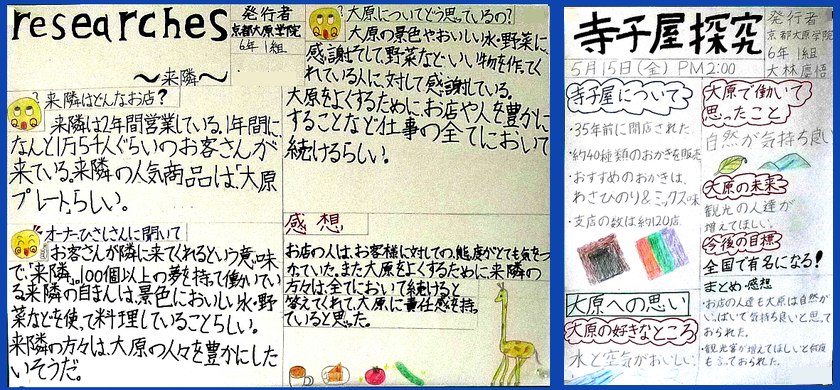 researches
～来隣～
発行者
京都大原学院
6年1組
?来隣はどんなお店?
来隣は2年間営業している。1年間に
なんと1万5千人ぐらいのお客さんが
来ている。来隣の人気商品は、「大原
プレート」らしい。
オーナーひさしさんに聞いて
お客さんが隣に来てくれるという意味
で、「来隣」。100個以上の夢を持って働いてい
る。来隣の自まんは、景色においしい水・野
菜などを使って料理していることらしい。
来隣の方々は、大原の人々を豊かにした
いそうだ。
?大原についてどう思っているの?
大原の景色やおいしい水・野菜に
感謝そして、野菜などいい物を作ってく
れている人に対して感謝している。
大原をよくするために、お店や人を豊かに
することなど仕事の全てにおいて
続けるらしい。
感想
お店の人は、お客様に対しての、態度がとても気をつ
かっていた。また大原をよくするために来隣の
方々は、全てにおいて続けると
答えてくれて、大原に責任感を持っ
ていると思った。
寺子屋探究
5月15日(金) PM2:00
発行者
京都大原学院
6年1組
大林慶悟
寺子屋について
・35年前に開店された
・約40種類のおかきを販売
・おすすめのおかきは、
わさびのり&ミックス味
・支店の数は約120店
大原への思い
大原の好きなところ
水と空気がおいしい
大原で働いて
思ったこと
自然が気持ち良い
大原の未来
観光の人達が
増えてほしい
今後の目標
全国で有名になる!
まとめ・感想
・お店の人達も大原は自然が
いっぱいで気持ち良いと思って
おられた。
・観光客が増えてほしいと何度
もおっておられた。